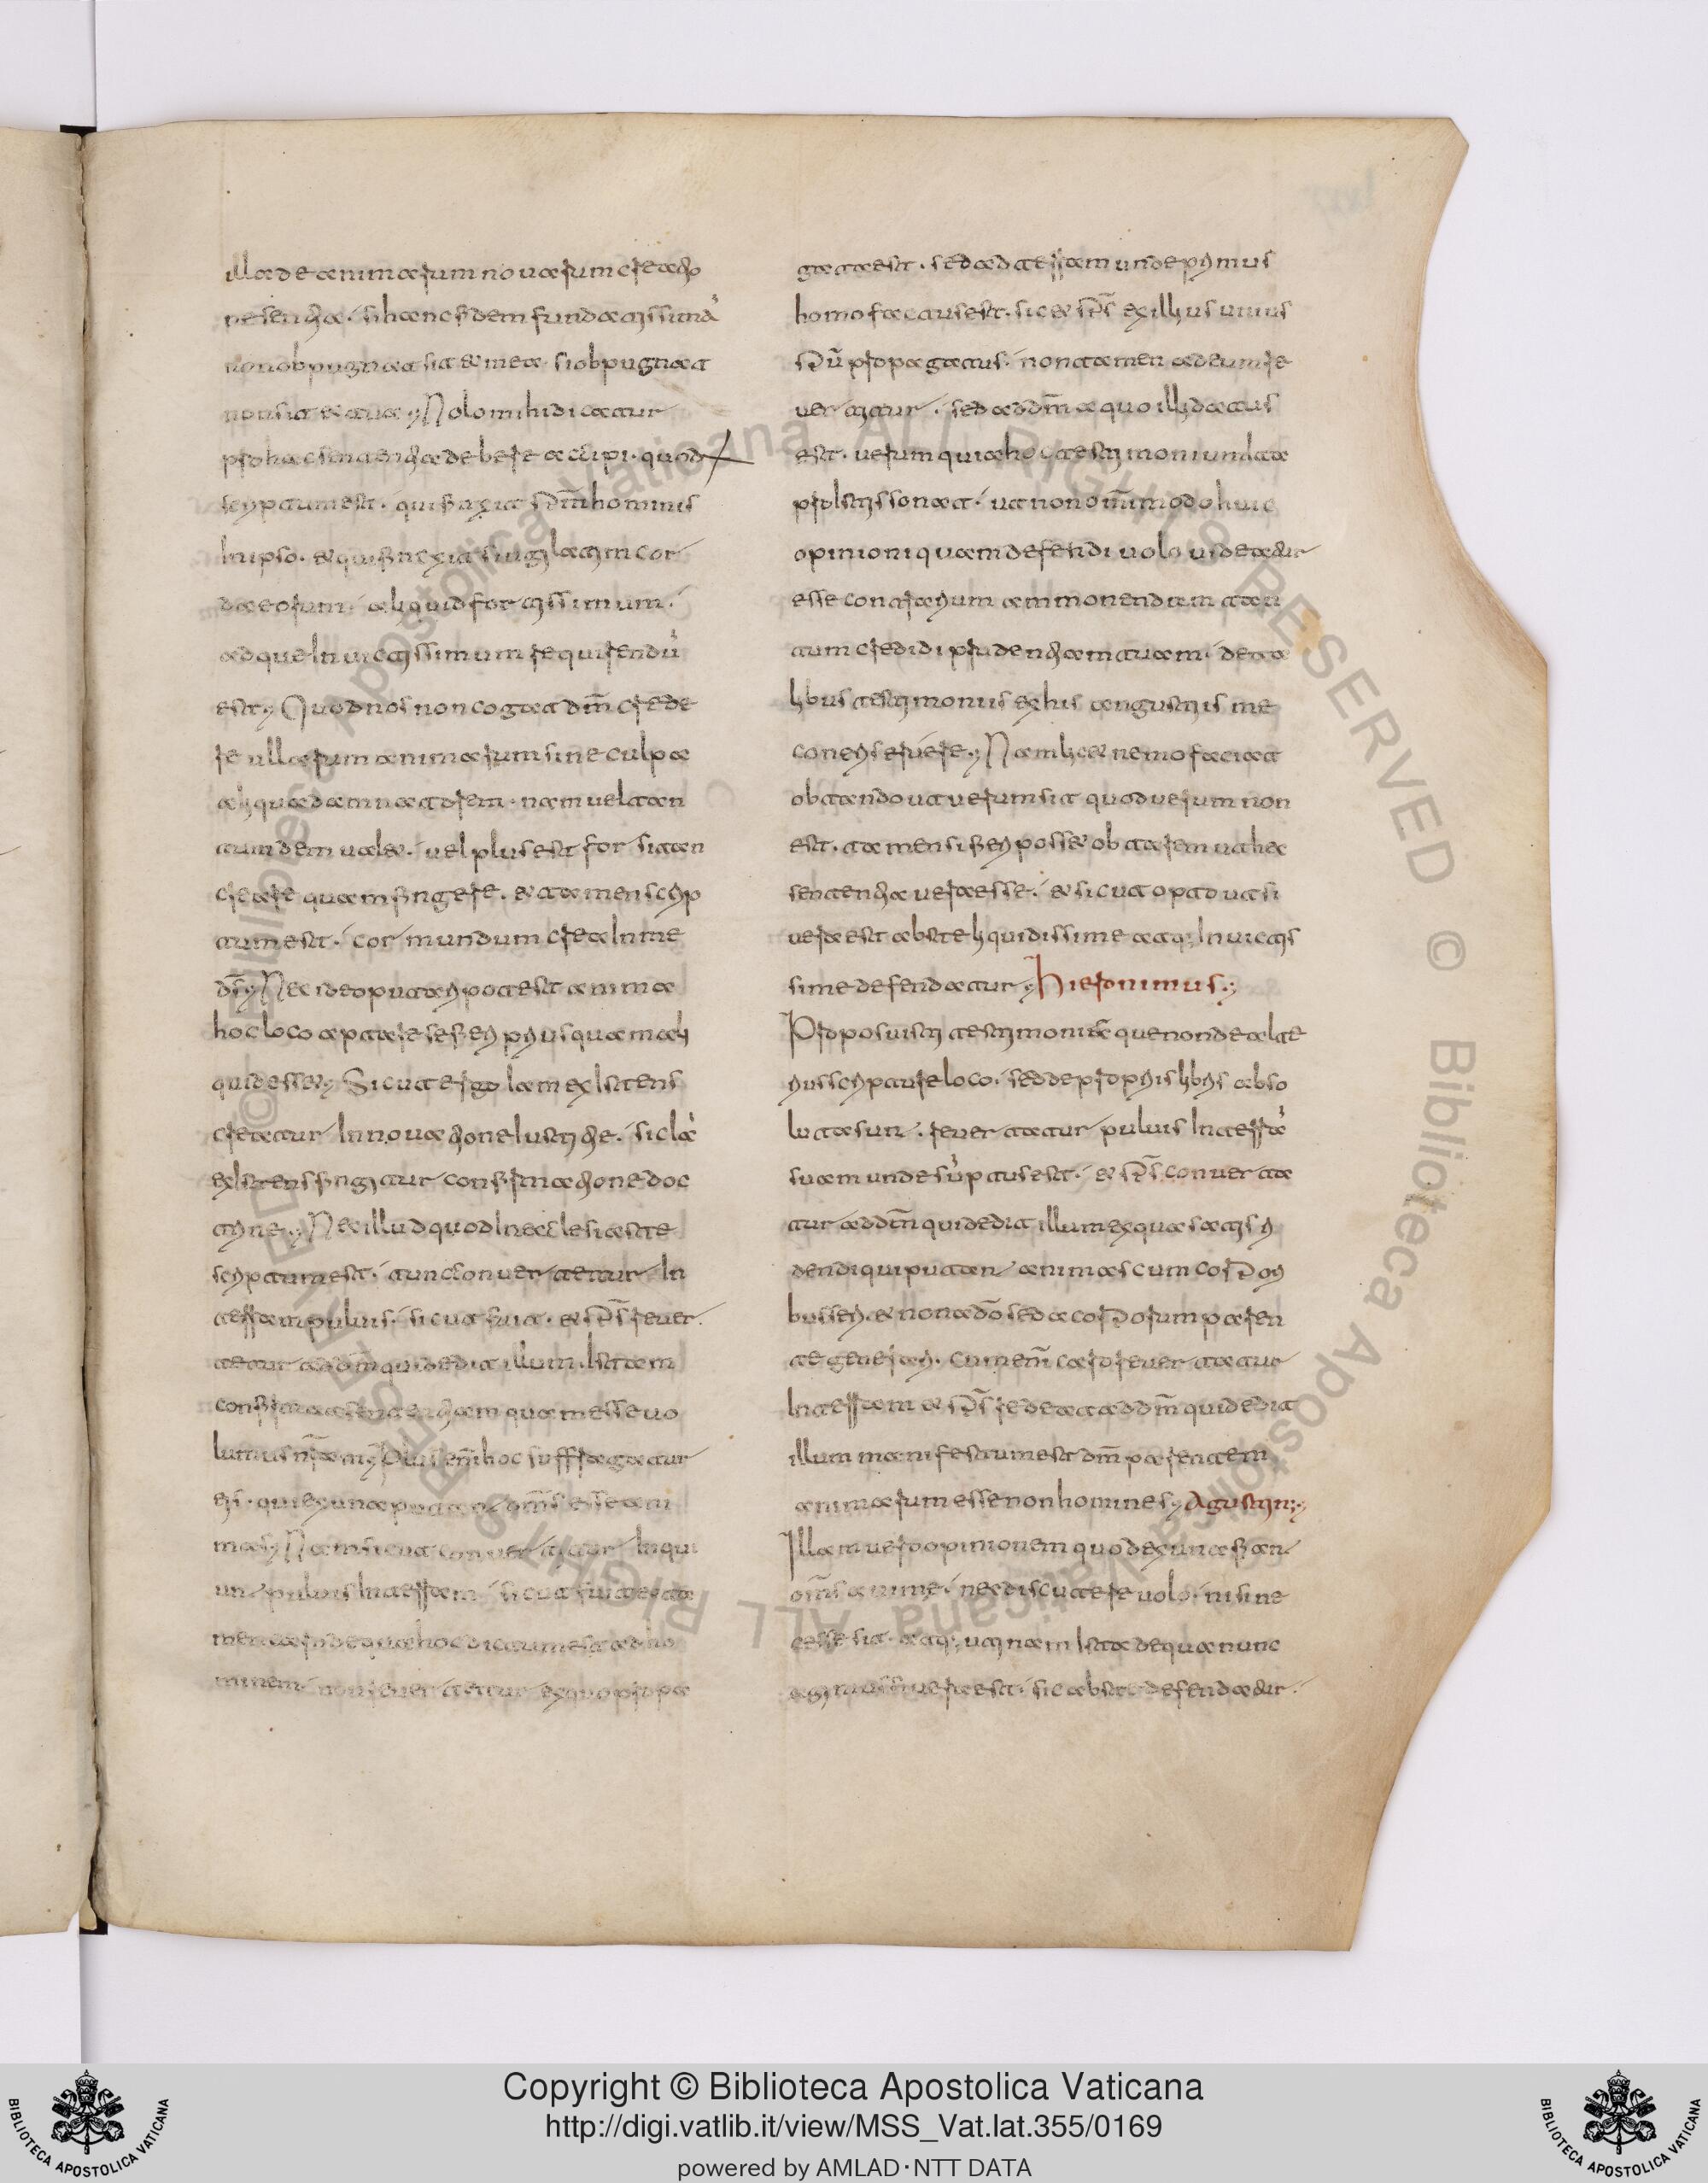 illa de animarum novarum creatio
ne sententia. si hanc fidem fundatissimā
non obpugnat sit et mea. si obpugnat
non sit et tua. Nolo mihi dicatur
pro hac sententia debere accipi. quod
scriptum est. qui finxit sp̄m hominis
In ipso. et qui finxit singilatim cor
da eorum. aliquid fortissimum.
adque Invictissimum requirendū
est. Quod nos non cogat dm̄ crede
re ullarum animarum sine culpa
aliqua damnatorem. nam vel tan
tundem valet. vel plus est forsitan
creare quam fingere. et tamen scrip
tum est. cor mundum crea In me
ds̄. Nec ideo putari potest anima
hoc loco optare se fieri priusquam ali
quid esset. Sicut ergo iam existens
creatur Innovatione Iustitie. sic iā
existens fingitur confirmatione doc
trine. Nec illud quod In ecclesiaste
scriptum est. tunc convertetur In
terram pulvis. sicut fuit. et sp̄s rever
tetur ad dm̄ qui dedit illum. Istam
confirmat sententiam quam esse vo
lumus nr̄am. Plus enī hoc suffragatur
eis. qui ex una putant om̄s esse ani
mas. Nam sicut convertitur Inqui
unt pulvis In terram. sicut fuit et ta
men caro de qua hoc dictum est ad ho
minem non revertetur ex quo propa
gata est. sed ad terram unde primus
homo factus est. sic et sp̄s ex illius unius
sp̄ū propagatus. non tamen ad eum re
vertitur. sed ad dm̄ a quo illi datus
est. verum quia hoc testimoniun Ita
pro Istis sonat. ut non om̄imodo huic
opinioni quam defendi volo videatur
esse contrarium ammonendam tan
tum credidi prudentiam tuam. de ta
libus testimoniis ex his angustiis me
coneris eruere. Nam licet nemo faciat
obtando ut verum sit quod verum non
est. tamen si fieri posset obtarem ut hec
sententia vera esse. et sicut opto ut si
vera est abs te liquidissime atq; Invictis
sime defendatur. Hieronimus.
Proposuisti testimonia que non de alte
rius scripture loco. sed de propriis libris abso
luta sun. revertatur pulvis In terrā
suam unde sūptus est. et sp̄s convertа
tur ad dm̄ qui dedit illum ex qua satis ri
dendi qui putan animas cum corpori
bus seri. et non a dō sed a corporum paren
te generari. cum enī caro revertatur
In terram et sp̄s redeat ad dm̄ qui dedit
illum manifestum est dm̄ parentem
animarum esse non homines. Agustin;
Illam vero opinionem quod ex una fian
om̄s anime. nec discutere volo. nisi ne
cesse sit. atq; utinam Ista de qua nunc
agimus si vera est. sic abs te defendatur.